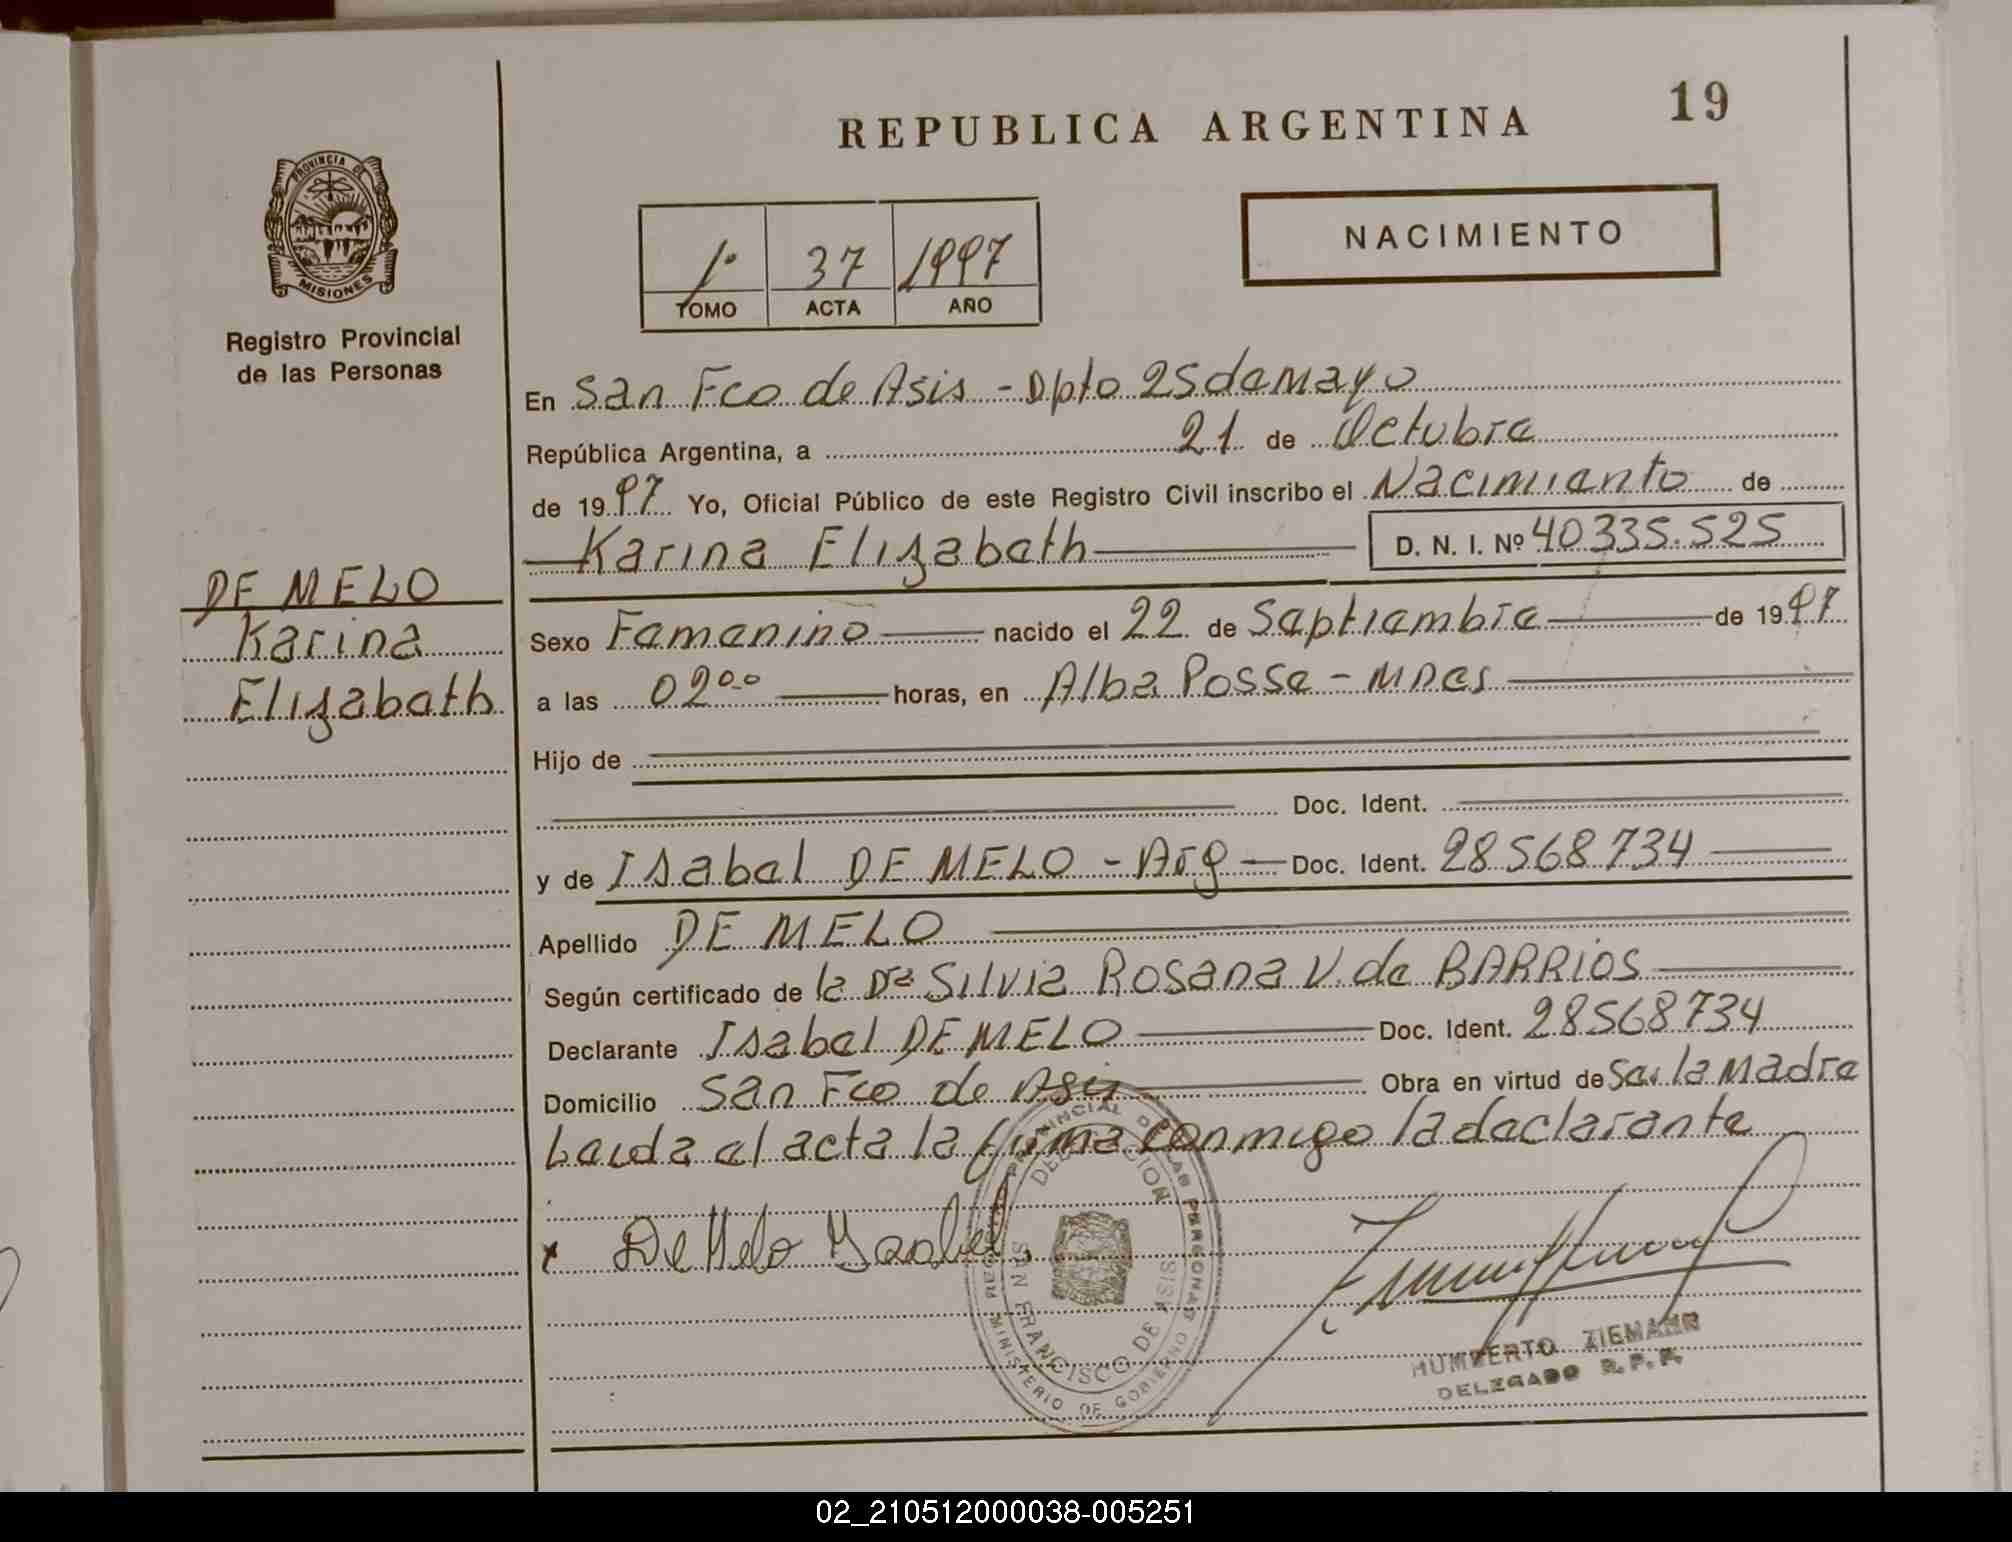 19
REPUBLICA ARGENTINA
PROVINCIA DE
MISIONES
Registro Provincial
de las Personas
NACIMIENTO
1º 37 1997
TOMO ACTA AÑO
En San Fco de Asis - Dpto 25 de Mayo
República Argentina, a 21 de Octubre
de 1997 Yo, Oficial Público de este Registro Civil inscribo el Nacimiento de
Karina Elizabeth D. N. I. Nº 40335.525
DE MELO
Karina
Elizabeth
Sexo Femenino nacido el 22 de Septiembre de 1997
a las 02 00 horas, en Alba Posse - Mnes
Hijo de
Doc. Ident.
y de Isabel DE MELO - Arg Doc. Ident. 28568734
Apellido DE MELO
Según certificado de la Dra Silvia Rosana V. de BARRIOS
Declarante Isabel DE MELO Doc. Ident. 28568734
Domicilio San Fco de Asis Obra en virtud de Ser la Madre
Leida el acta la firma conmigo la declarante
x De Melo Ysabel
PROVINCIAL DE LAS PERSONAS
DELEGACION
SAN FRANCISCO DE ASIS
MINISTERIO DE GOBIERNO
HUMBERTO ZIEMANN
DELEGADO R. P. P.
02_210512000038-005251